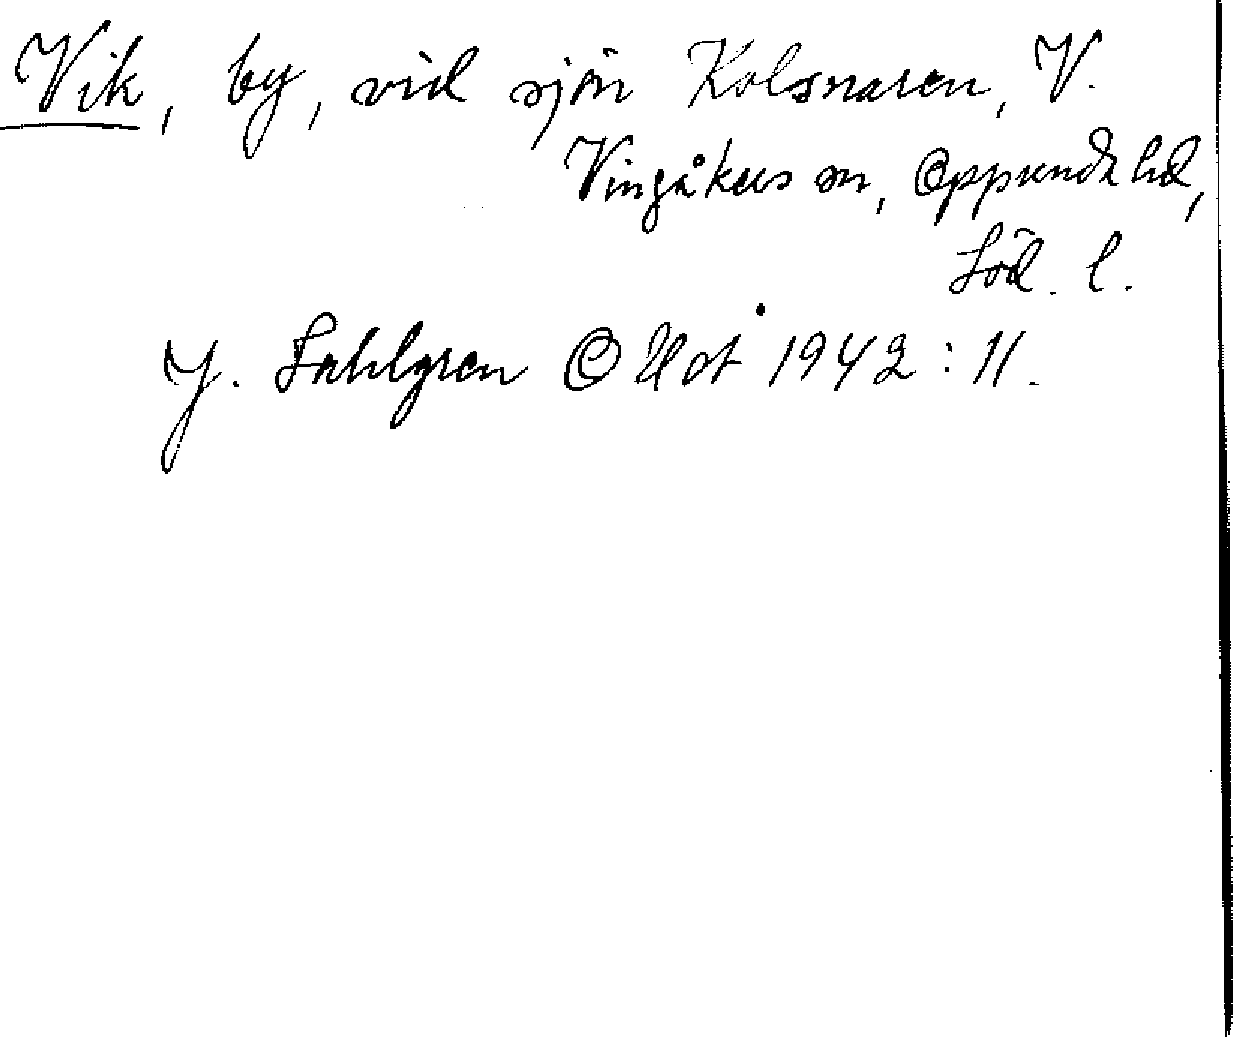 Vik, by, vid sjön Kolsnaren, V.
Vingåkers sn, Oppunda hd,
Söd. l.
J. Sahlgren OUÅ 1942:11.